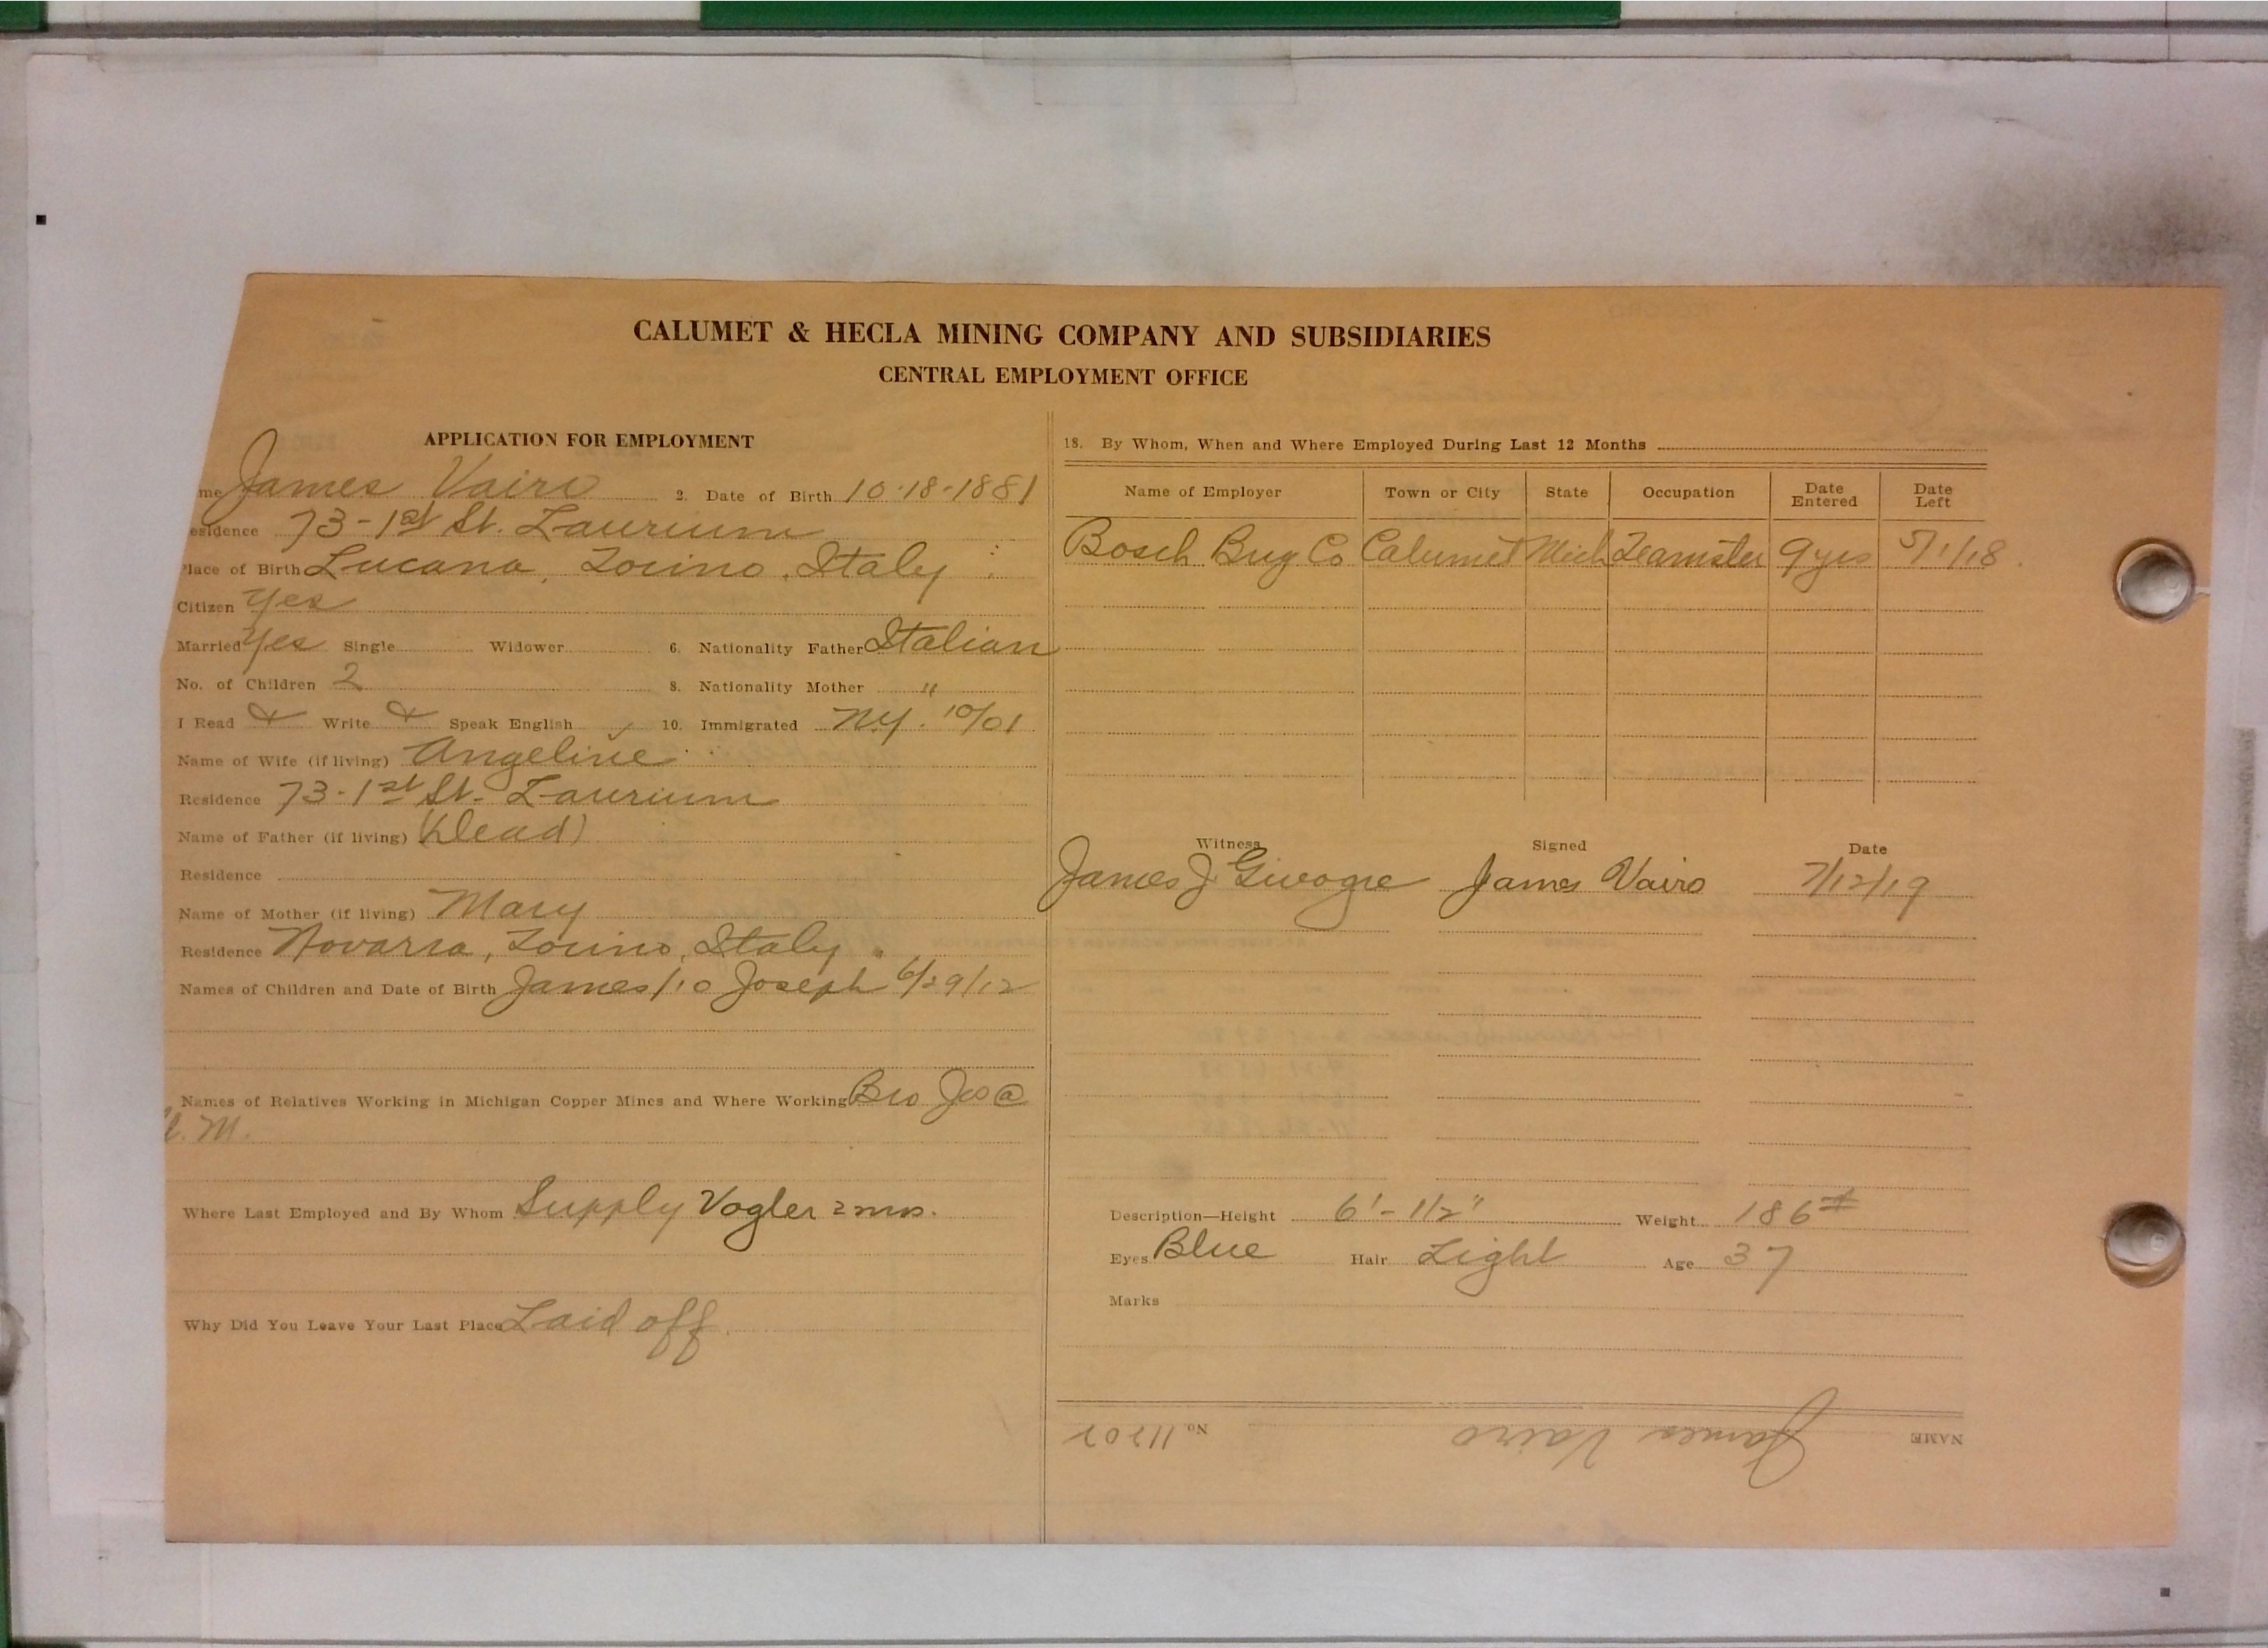 CALUMET & HECLA MINING COMPANY AND SUBSIDIARIES
CENTRAL EMPLOYMENT OFFICE
APPLICATION FOR EMPLOYMENT
me James Vairo 2. Date of Birth 10-18-1881
esidence 73-1st St. Laurium
Place of Birth Lucana, Torino, Italy
Citizen Yes
Married Yes Single Widower 6. Nationality Father Italian
No. of Children 2 8. Nationality Mother "
I Read & Write & Speak English ✓ 10. Immigrated N.Y. 10/01
Name of Wife (if living) Angeline
Residence 73-1st St. Laurium
Name of Father (if living) (Dead)
Residence
Name of Mother (if living) Mary
Residence Novarra, Torino, Italy
Names of Children and Date of Birth James /10 Joseph 6/29/12
Names of Relatives Working in Michigan Copper Mines and Where Working Bro Jos @
M.
Where Last Employed and By Whom Supply Vogler 2 mos.
Why Did You Leave Your Last Place Laid off
18. By Whom, When and Where Employed During Last 12 Months
Name of Employer Town or City State Occupation Date Entered Date Left
Bosch Brg Co Calumet Mich Teamster 9 yrs 5/1/18
Witness Signed Date
James J James Vairo 7/12/19
Description—Height 6'-1 1/2" Weight 186#
Eyes Blue Hair Light Age 37
Marks
NAME James Vairo No. 11202